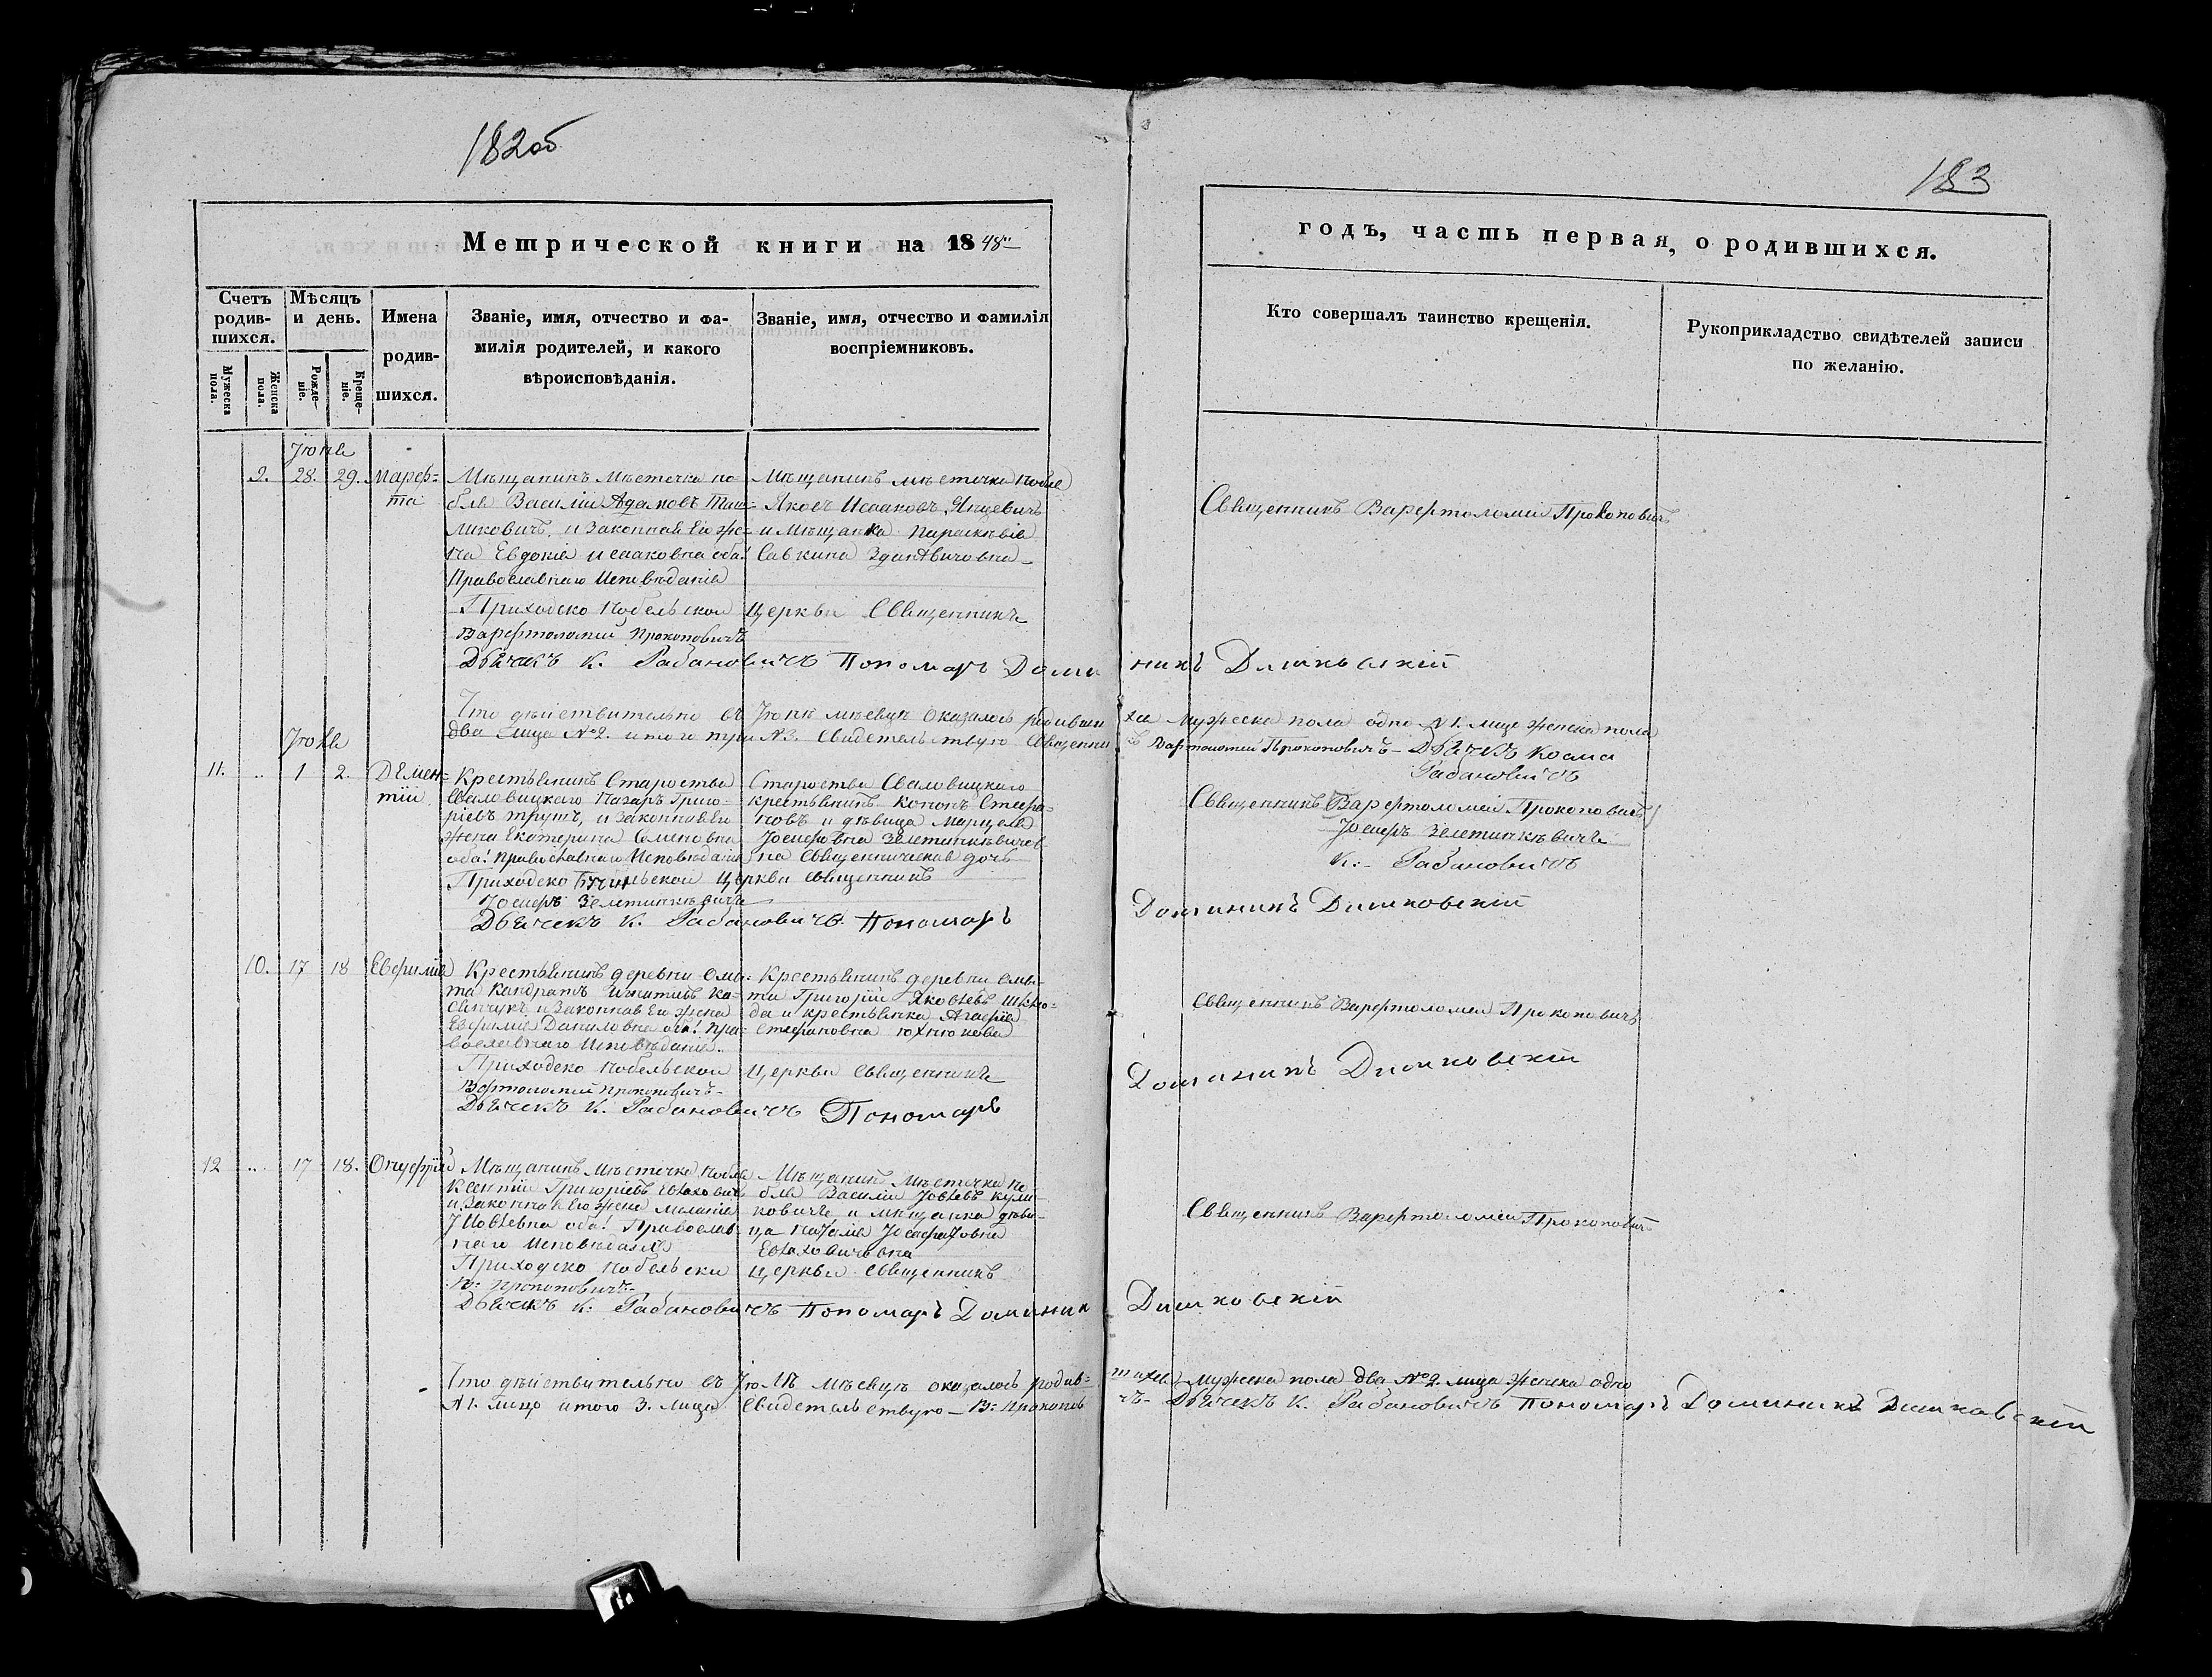 182об
183
Метрической книги на 1848
годъ, часть первая, о родившихся.
Счетъ родив-шихся.
Мужеска пола.
Женска пола.
Мѣсяцъ и день.
Рожде-ніе.
Креще-ніе.
Имена родив-шихся.
Званіе, имя, отчество и фа-
милія родителей, и какого
вѣроисповѣданія.
Званіе, имя, отчество и фамилія
воспріемниковъ.
Кто совершалъ таинство крещенія.
Рукоприкладство свидѣтелей записи
по желанію.
Іюня
9. 28. 29. Мареф-
та
Мѣщанинъ Мѣстечка по-
бля Василій Адамовъ
и Законная Его же-
на Евдокія Исааковна оба!
Православнаго Исповѣданія
Мѣщанинъ мѣстечка
Яковъ Исааковъ Янцевичъ
и Мѣщанка Параскевія
Савкина
Священникъ Варфтоломей Прокоповичъ
Приходско Нобельской Церкви Священникъ
Варфтоломей Прокоповичъ
Дьячекъ К. Рабановичъ Пономаръ Доминикъ Дишковскій
Что дѣйствительно въ Іюнѣ мѣсяцѣ оказалось родивши хся Мужеска пола одно №1. лице женска пола
два лица №2. итого три №3. Свидетельствую Священни Вартоломей Прокоповичъ - Дьячекъ Косма
Рабановичъ
Іюля
11. .. 1 2. Демен-
тій
Крестьянинъ Староства
Сваловицкаго Назаръ Григо-
ріевъ трушъ, и законная Ег
жена Екатерина Семеновна
оба! православнаго Исповѣданія
Староства Сваловицкаго
крестьянинъ Кононъ Стефа-
новъ и дѣвица Марцеля
Іосифовна Зелетинкѣвичов
на Священническая дочь
Священникъ Варфтоломей Прокоповичъ
Іосифъ Зелетинкѣвичъ
К. Рабановичъ
Приходско Церкви священникъ
Іосифъ Зелетинкѣвичъ
Дьячекъ К. Рабановичъ. Пономаръ Доминикъ Дишковскій
10. 17 18 Евфимія
Крестьянинъ деревни Омы-
та Кандратъ Игнатіевъ Ка-
и Законная Ег жена
Евфимія Даниловна оба! пра-
вославнаго Исповѣданія.
Крестьянинъ деревни Омы-
та Григорій Яковлевъ Шклю-
да и крестьянка Агафія
Стефановна
Священникъ Варфтоломей Прокоповичъ
Приходско Нобельской Церкви Священникъ
Вартоломей Прокоповичъ
Дьячекъ К. Рабановичъ Пономаръ Доминикъ Дишковскій
12 .. 17 18. Онуфрій
Мѣщанинъ Мѣстечка Нобля
Ксентій Григоріевъ Евлаховичъ
и Законная Его жена Меланія
Іовлевна оба! Православ-
наго Исповѣданія
Мѣщанинъ Мѣстечка Но-
бля Василій Іовлевъ Кули-
ковичъ и мѣщанка дѣви-
ца Іосафатовна
Евлаховичовна
Священникъ Варфтоломей Прокоповичъ
Приходско Нобельски церкви священникъ
В: Прокоповичъ
Дьячекъ К: Рабановичъ Пономаръ Доминик Дишковскій
Что дѣйствительно въ Іюлѣ мѣсяцѣ оказалось родив- шихся Мужеска пола два №2. лица женска одно
№1. лицо итого 3. лица Свидетельствую - В: Прокопов чъ - Дьячекъ К. Рабановичъ Пономаръ Доминикъ Дишковскій